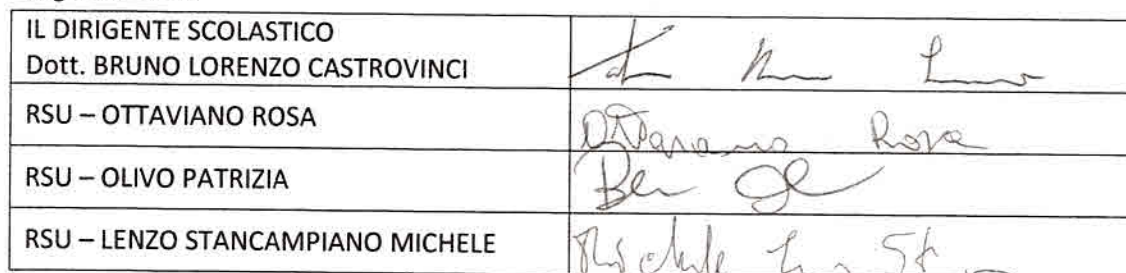 IL DIRIGENTE SCOLASTICO
Dott. BRUNO LORENZO CASTROVINCI
RSU – OTTAVIANO ROSA
Ottaviano Rosa
RSU – OLIVO PATRIZIA
RSU – LENZO STANCAMPIANO MICHELE
Michele